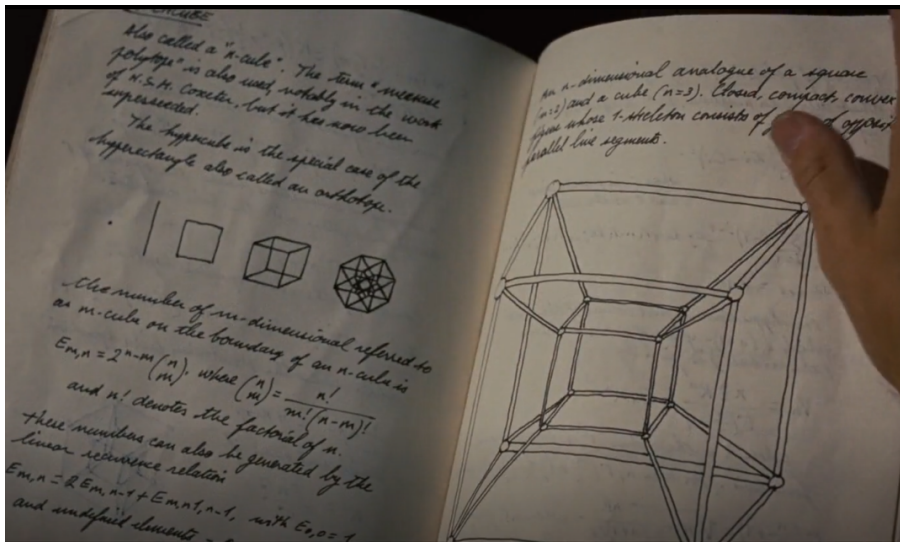 Also called a "n-cube". The term "measure
polytope" is also used, notably in the work
of H.S.M. Coxeter, but it has now been
superseeded.
The hypercube is the special case of the
hyperectangle also called an orthotope.
the number of m-dimensional referred to
an m-cube on the boundary of an n-cube is
E m,n = 2^n-m (n m), where (n m) = n! / m!(n-m)!
and n! denotes the factorial of n.
These numbers can also be generated by the
linear recurrence relation
E m,n = 2 E m,n-1 + E m-1,n-1, with E 0,0 = 1
and undefined elements
An n-dimensional analogue of a square
(n=2) and a cube (n=3). Closed, compact, convex
figure whose 1-skeleton consists of of opposit
parallel line segments.